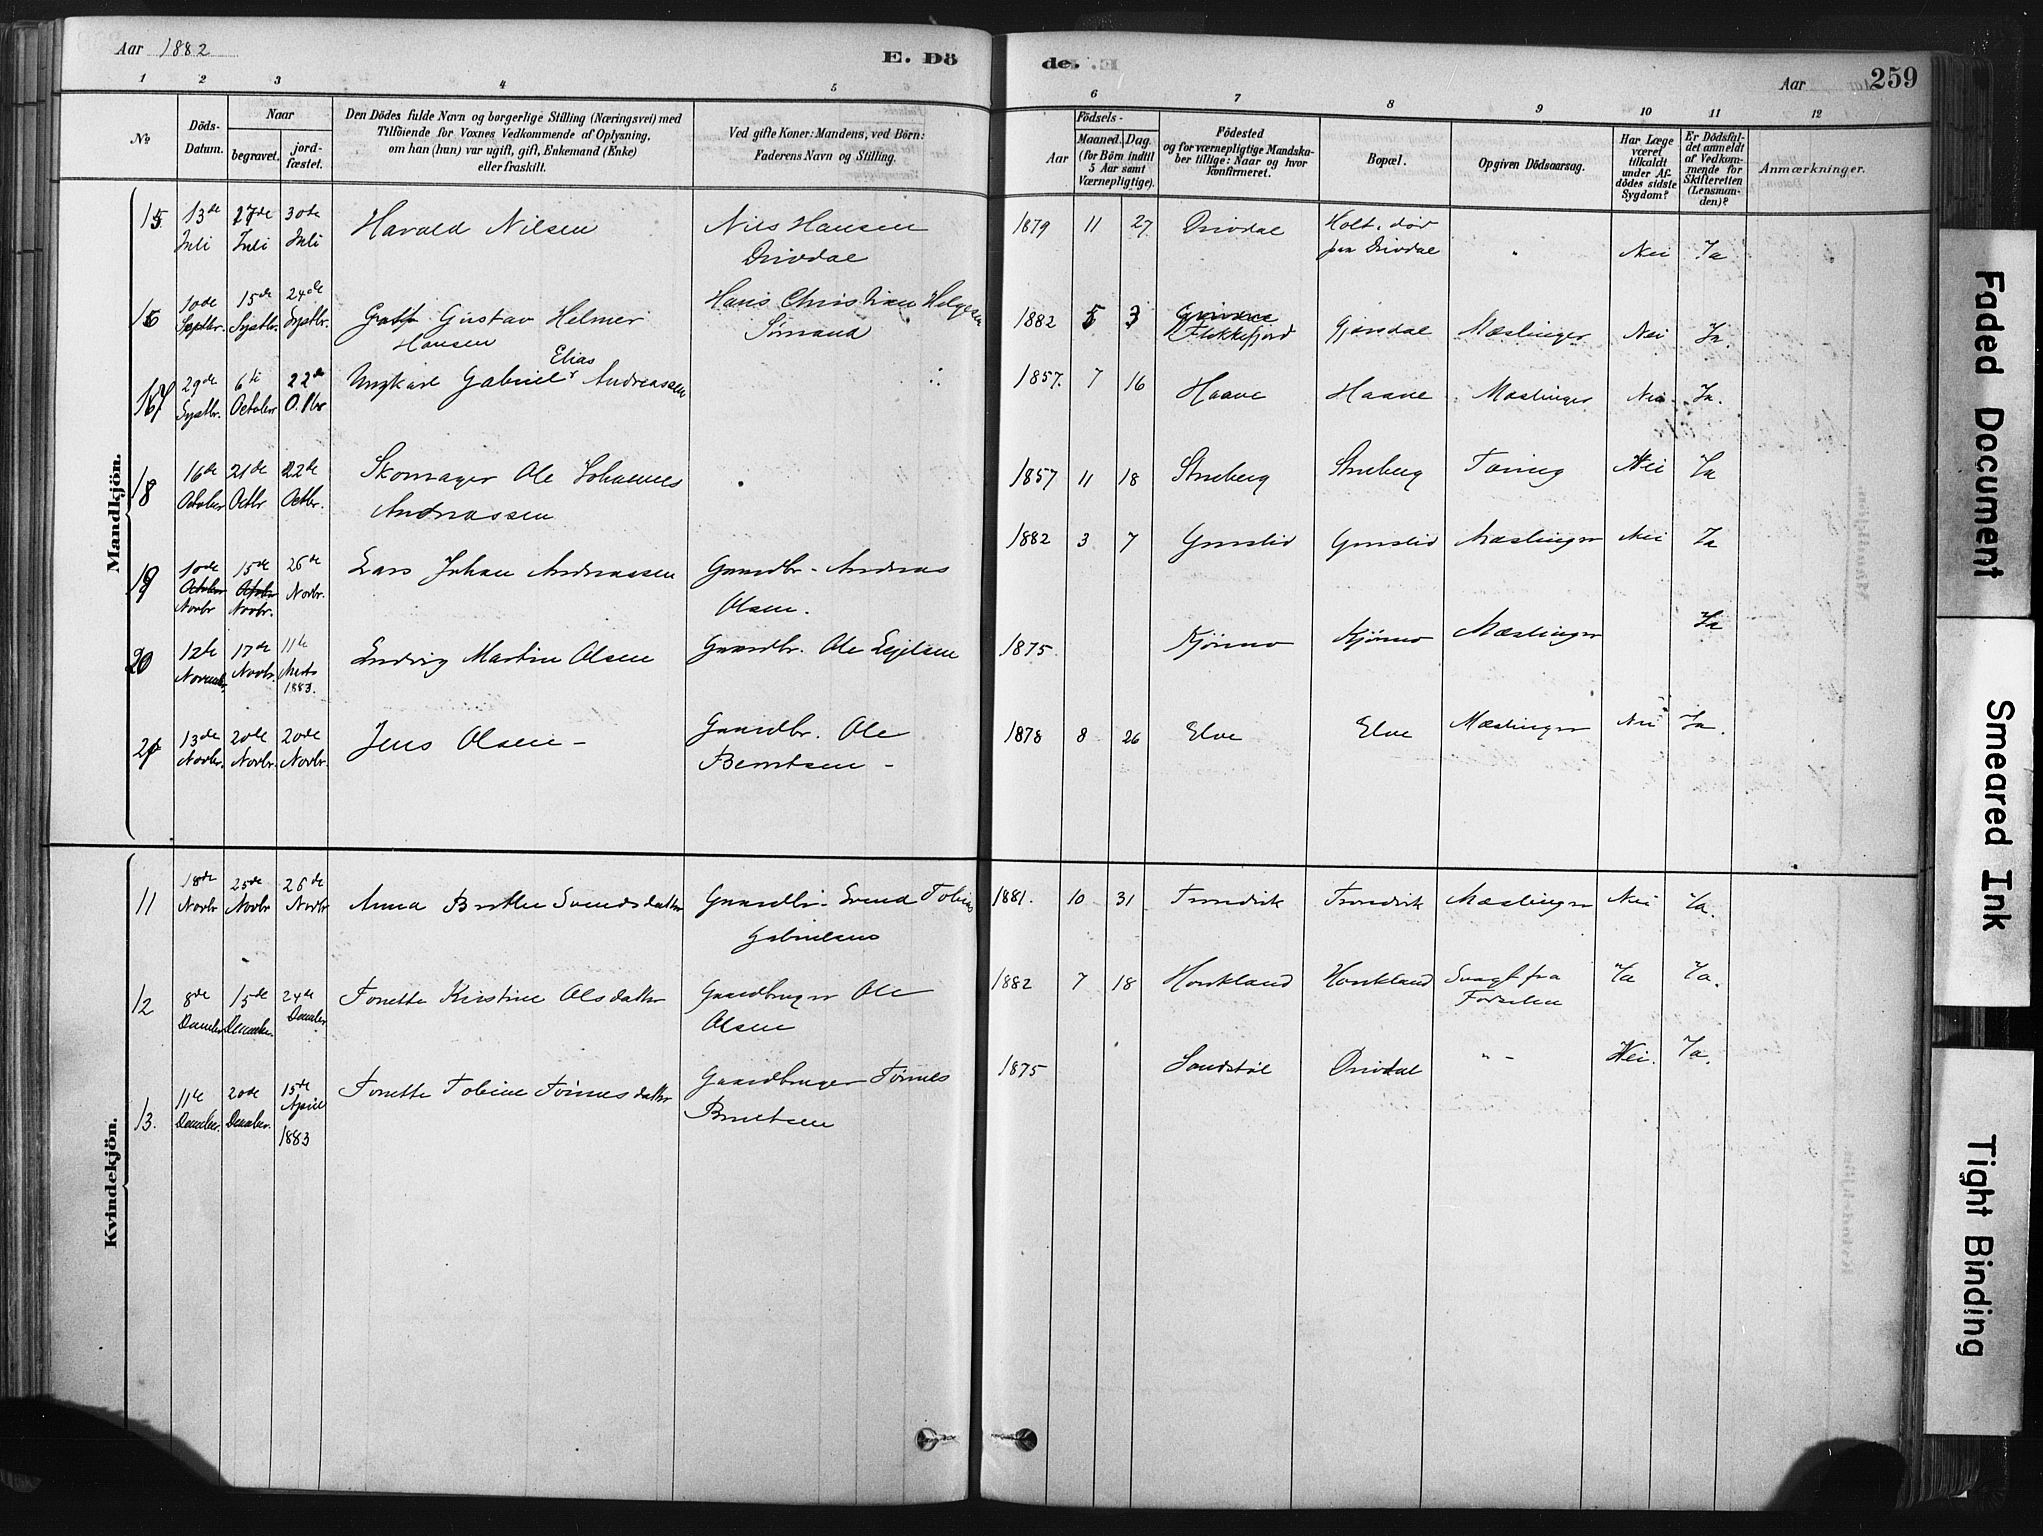 Aar 1882
E. Dö
de.
Aar
259
1 2 3 4 5 6 7 8 9 10 11 12
No
Döds-
Datum.
Naar
begravet.
jord-
fæstet.
Den Dödes fulde Navn og borgerlige Stilling (Næringsvei) med
Tilföiende for Voxnes Vedkommende af Oplysning,
om han (hun) var ugift, gift, Enkemand (Enke)
eller fraskilt.
Ved gifte Koner: Mandens, ved Börn:
Faderens Navn og Stilling.
Födsels-
Aar
Maaned.
Dag.
(for Börn indtil
5 Aar samt
Værnepligtige).
Födested
og for værnepligtige Mandska-
ber tillige: Naar og hvor
konfirmeret.
Bopæl.
Opgiven Dödsaarsag.
Har Læge
været
tilkaldt
under Af-
dödes sidste
Sygdom?
Er Dödsfal-
det anmeldt
af Vedkom-
mende for
Skifteretten
(Lensman-
den)?
Anmærkninger.
Mandkjön.
15 13de Juli 27de Juli 30de Juli Harald Nilsen Nils Hansen Drivdal 1879 11 27 Drivdal Holt, død paa Drivdal " Nei Ja
16 10de Septbr. 15de Septbr. 24de Septbr. Gustav Helmer Hansen Hans Christian Helgesen 1882 5 3 Flekkefjord Gjønsdal Mæslinger Nei Ja.
17 29de Septbr. 6te October 22de Ungkarl Gabriel Elias Andreassen 1857. 7 16 Haave Haave Mæslinger Nei Ja.
18 16de October 21de Octbr 22de Octbr. Skomager Ole Johannes Andreassen 1857 11 18 Stueberg Stueberg Tæring Nei Ja
19 10de Novbr 15de Novbr. 26de Novbr. Lars Johan Andreassen Gaardbr. Andreas Olsen. 1882 3 7 Mæslinger Nei Ja
20 12te Novemb. 17de Novbr. 11te Marts 1883. Ludvig Martin Olsen Gaardbr. Ole Eyelsen 1875. Kjørmo Kjørmo Mæslinger Ja
21 13de Novbr. 20de Novbr. 20de Novbr. Jens Olsen - Gaardbr. Ole Berntsen - 1878 8 26 Elve Elve Mæslinger Nei Ja.
Kvindekjön.
11 18de Novbr 25de Novbr 26de Novbr Anna Berthe Svendsdatter Gaardbr. Svend Tobias Gabrielsens 1881. 10 31 Trondvik Trondvik Mæslinger Nei Ja.
12 8de December 15de December. 24de Decmbr. Tonette Kristine Olsdatter Gaardbruger Ole Olsen 1882 7 18 Honkland Honkland Svagt fra Fødselen Ja Ja.
13. 11te December. 20de December. 15de April 1883 Tonette Tobine Tønnesdatter Gaardbruger Tønnes Berntsen 1875 Sandstøl Drivdal " - Nei. Ja.
Faded Document
Smeared Ink
Tight Binding